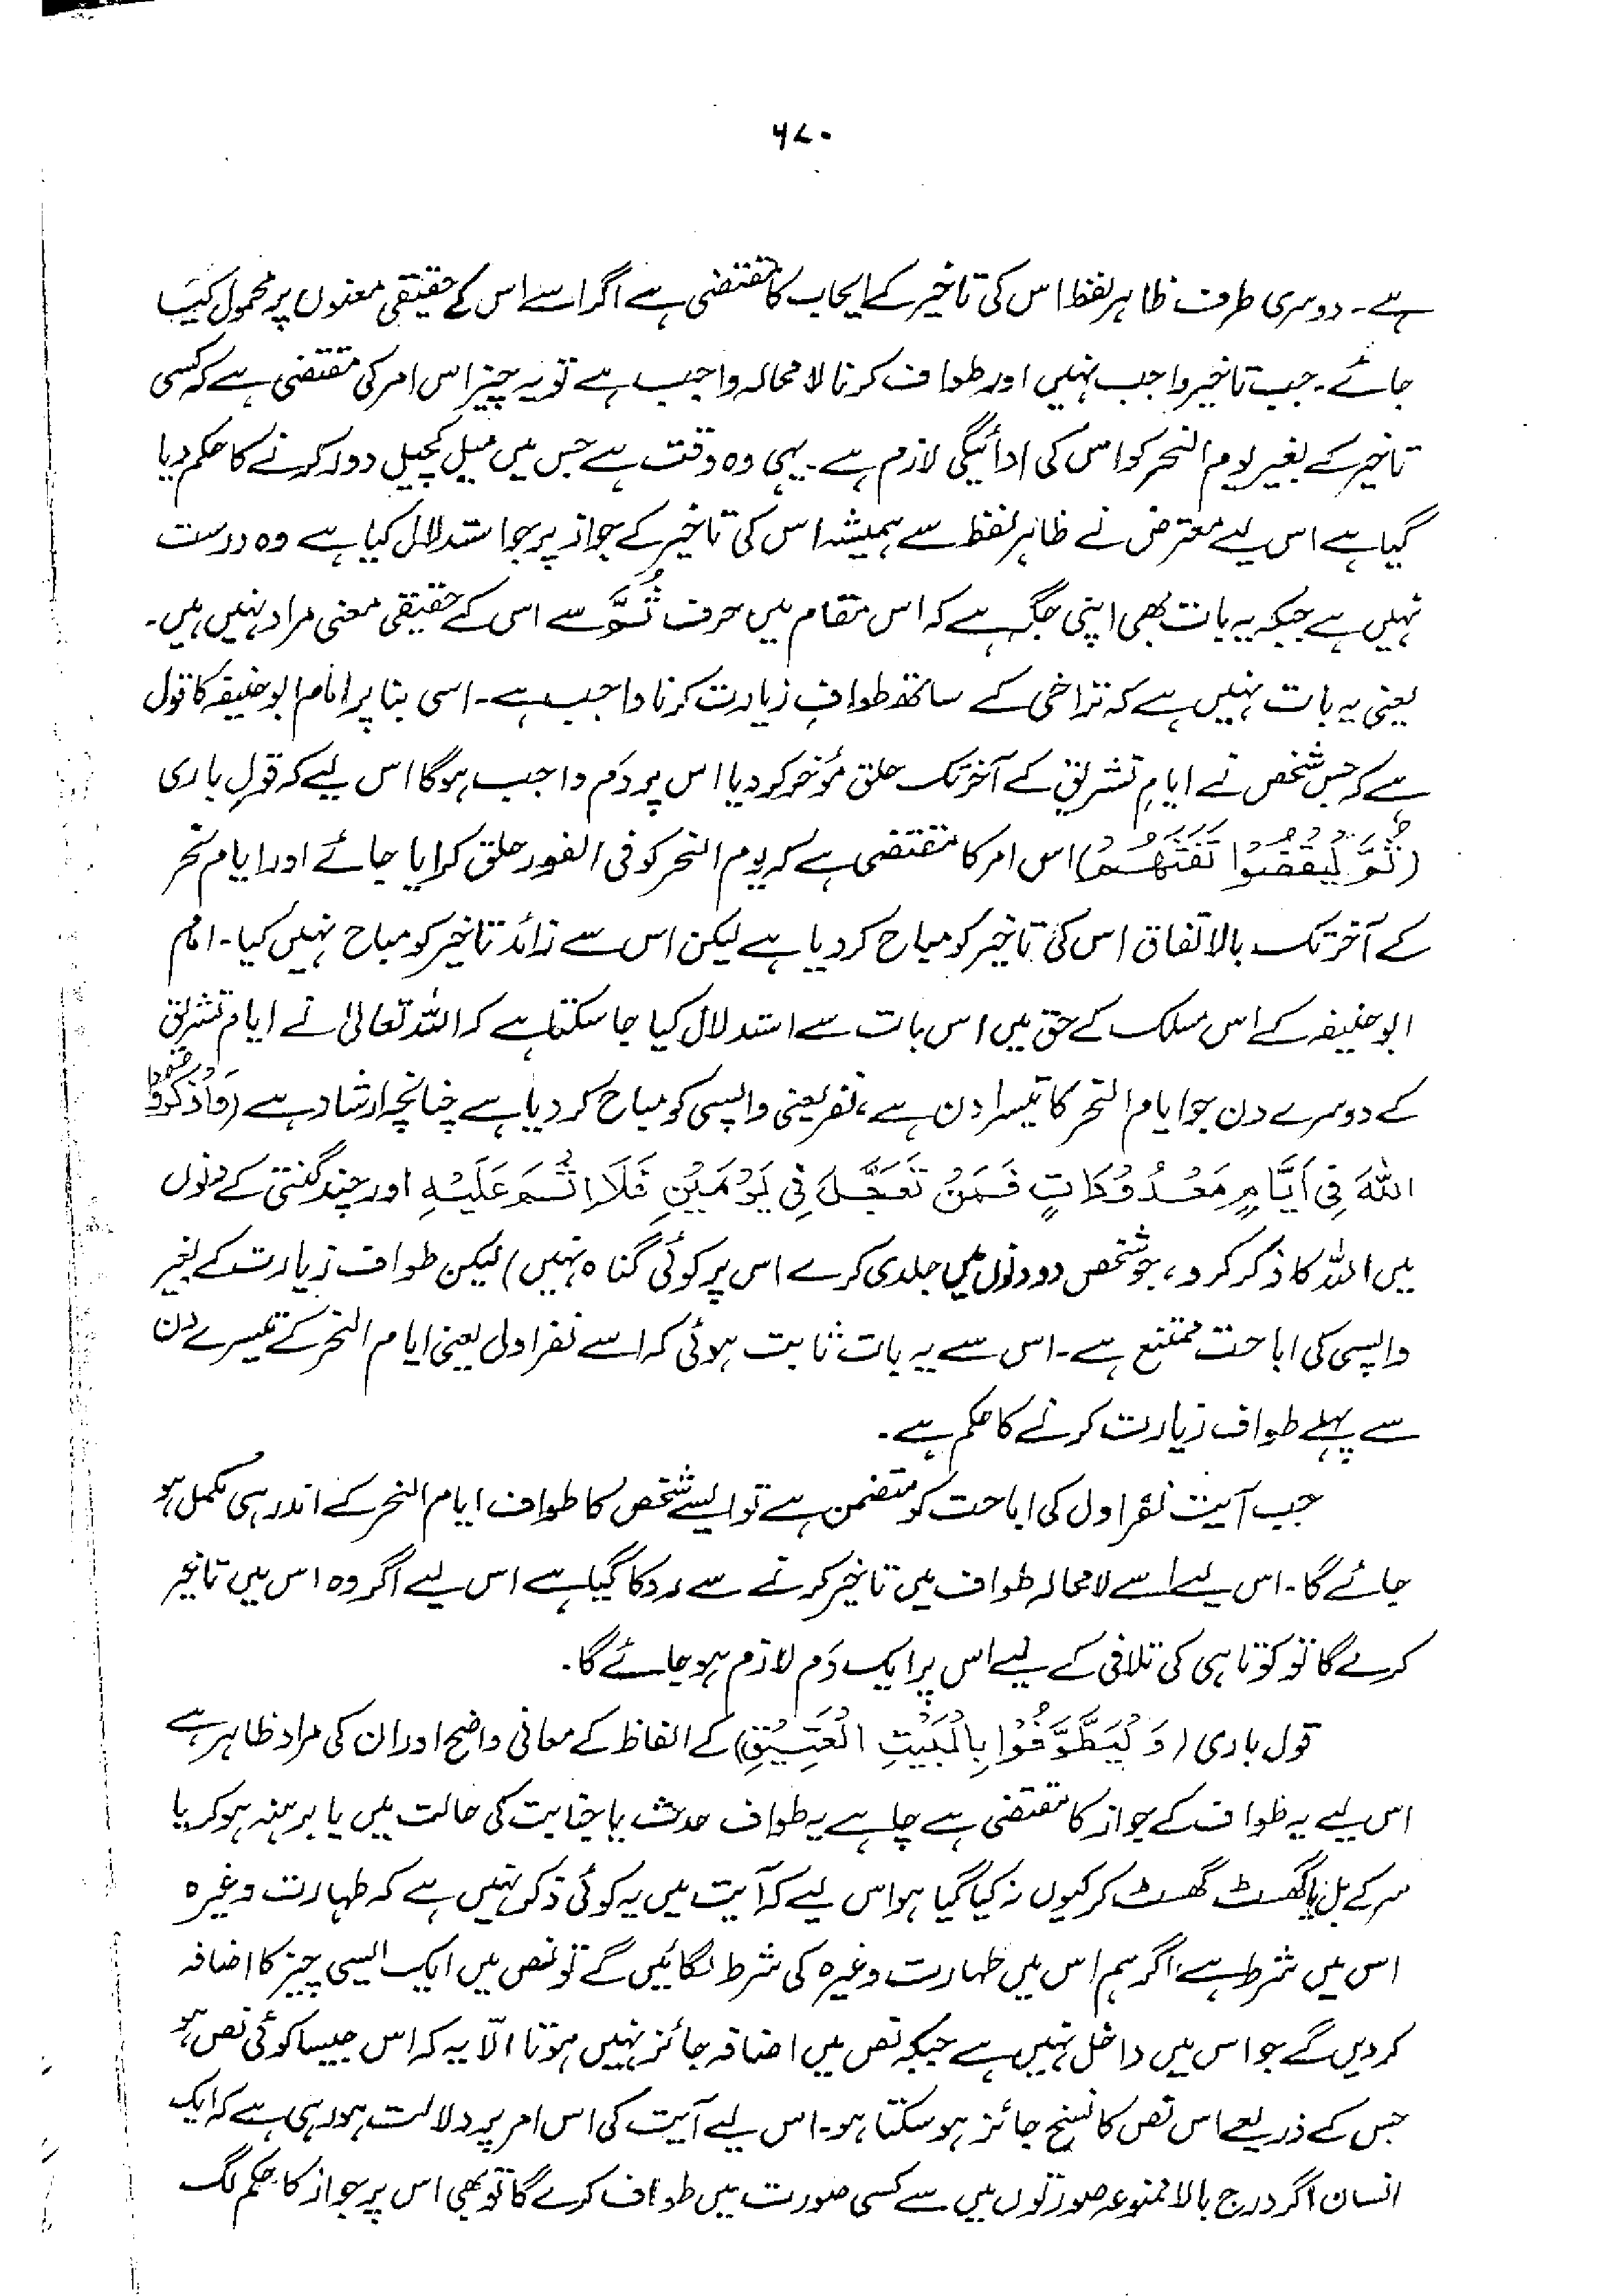 ۶۷۰
ہے۔ دوسری طرف ظاہر لفظ اس کی تاخیر کے ایجاب کا مقتضی ہے اگر اسے اس کے حقیقی معنوں پر محمول کیا
جائے۔ جب تاخیر واجب نہیں اور طواف کرنا لامحالہ واجب ہے تو یہ چیز اس امر کی مقتضی ہے کہ کسی
تاخیر کے بغیر یوم النحر کو اس کی ادائیگی لازم ہے۔ یہی وہ وقت ہے جس میں میل کچیل دور کرنے کا حکم دیا
گیا ہے اس لیے معترض نے ظاہر لفظ سے ہمیشہ اس کی تاخیر کے جواز پر جو استدلال کیا ہے وہ درست
نہیں ہے جبکہ یہ بات بھی اپنی جگہ ہے کہ اس مقام میں حرف ثُمَّ سے اس کے حقیقی معنی مراد نہیں ہیں۔
یعنی یہ بات نہیں ہے کہ تراخی کے ساتھ طوافِ زیارت کرنا واجب ہے۔ اسی بنا پر امام ابوحنیفہ کا قول
ہے کہ جس شخص نے ایامِ تشریق کے آخر تک حلق مؤخر کر دیا اس پر دَم واجب ہوگا اس لیے کہ قولِ باری
(ثُمَّ لْيَقْضُوْا تَفَثَهُمْ) اس امر کا مقتضی ہے کہ یوم النحر کو فی الفور حلق کرایا جائے اور ایام نحر
کے آخر تک بالاتفاق اس کی تاخیر کو مباح کر دیا ہے لیکن اس سے زائد تاخیر کو مباح نہیں کیا۔ امام
ابوحنیفہ کے اس مسلک کے حق میں اس بات سے استدلال کیا جا سکتا ہے کہ اللہ تعالیٰ نے ایام تشریق
کے دوسرے دن جو ایام النحر کا تیسرا دن ہے، نفر یعنی واپسی کو مباح کر دیا ہے چنانچہ ارشاد ہے (وَاذْكُرُوا
اللّٰهَ فِیْ اَيَّامٍ مَعْدُوْدَاتٍ فَمَنْ تَعَجَّلَ فِیْ يَوْمَيْنِ فَلَا اِثْمَ عَلَيْهِ اور چند گنتی کے دنوں
میں اللہ کا ذکر کرو، جو شخص دو دنوں میں جلدی کرے اس پر کوئی گناہ نہیں) لیکن طواف زیارت کے بغیر
واپسی کی اباحت ممتنع ہے۔ اس سے یہ بات ثابت ہوئی کہ اسے نفر اول یعنی ایام النحر کے تیسرے دن
سے پہلے طواف زیارت کرنے کا حکم ہے۔
جب آیت نفر اول کی اباحت کو متضمن ہے تو ایسے شخص کا طواف ایام النحر کے اندر ہی مکمل ہو
جائے گا۔ اس لیے اسے لامحالہ طواف میں تاخیر کرنے سے روکا گیا ہے اس لیے اگر وہ اس میں تاخیر
کرے گا تو کوتاہی کی تلافی کے لیے اس پر ایک دَم لازم ہو جائے گا۔
قول باری (وَلْيَطَّوَّفُوْا بِالْبَيْتِ الْعَتِيْقِ) کے الفاظ کے معانی واضح اور ان کی مراد ظاہر ہے
اس لیے یہ طواف کے جواز کا مقتضی ہے چاہے یہ طواف حدث یا جنابت کی حالت میں یا برہنہ ہو کر یا
سر کے بل یا گھسٹ گھسٹ کر کیوں نہ کیا گیا ہو اس لیے کہ آیت میں یہ کوئی ذکر نہیں ہے کہ طہارت وغیرہ
اس میں شرط ہے، اگر ہم اس میں طہارت وغیرہ کی شرط لگائیں گے تو نص میں ایک ایسی چیز کا اضافہ
کر دیں گے جو اس میں داخل نہیں ہے جبکہ نص میں اضافہ جائز نہیں ہوتا الّا یہ کہ اس جیسا کوئی نص ہو
جس کے ذریعے اس نص کا نسخ جائز ہو سکتا ہو۔ اس لیے آیت کی اس امر پر دلالت ہو رہی ہے کہ ایک
انسان اگر درج بالا ممنوعہ صورتوں میں سے کسی صورت میں طواف کرے گا تو بھی اس پر جواز کا حکم لگ